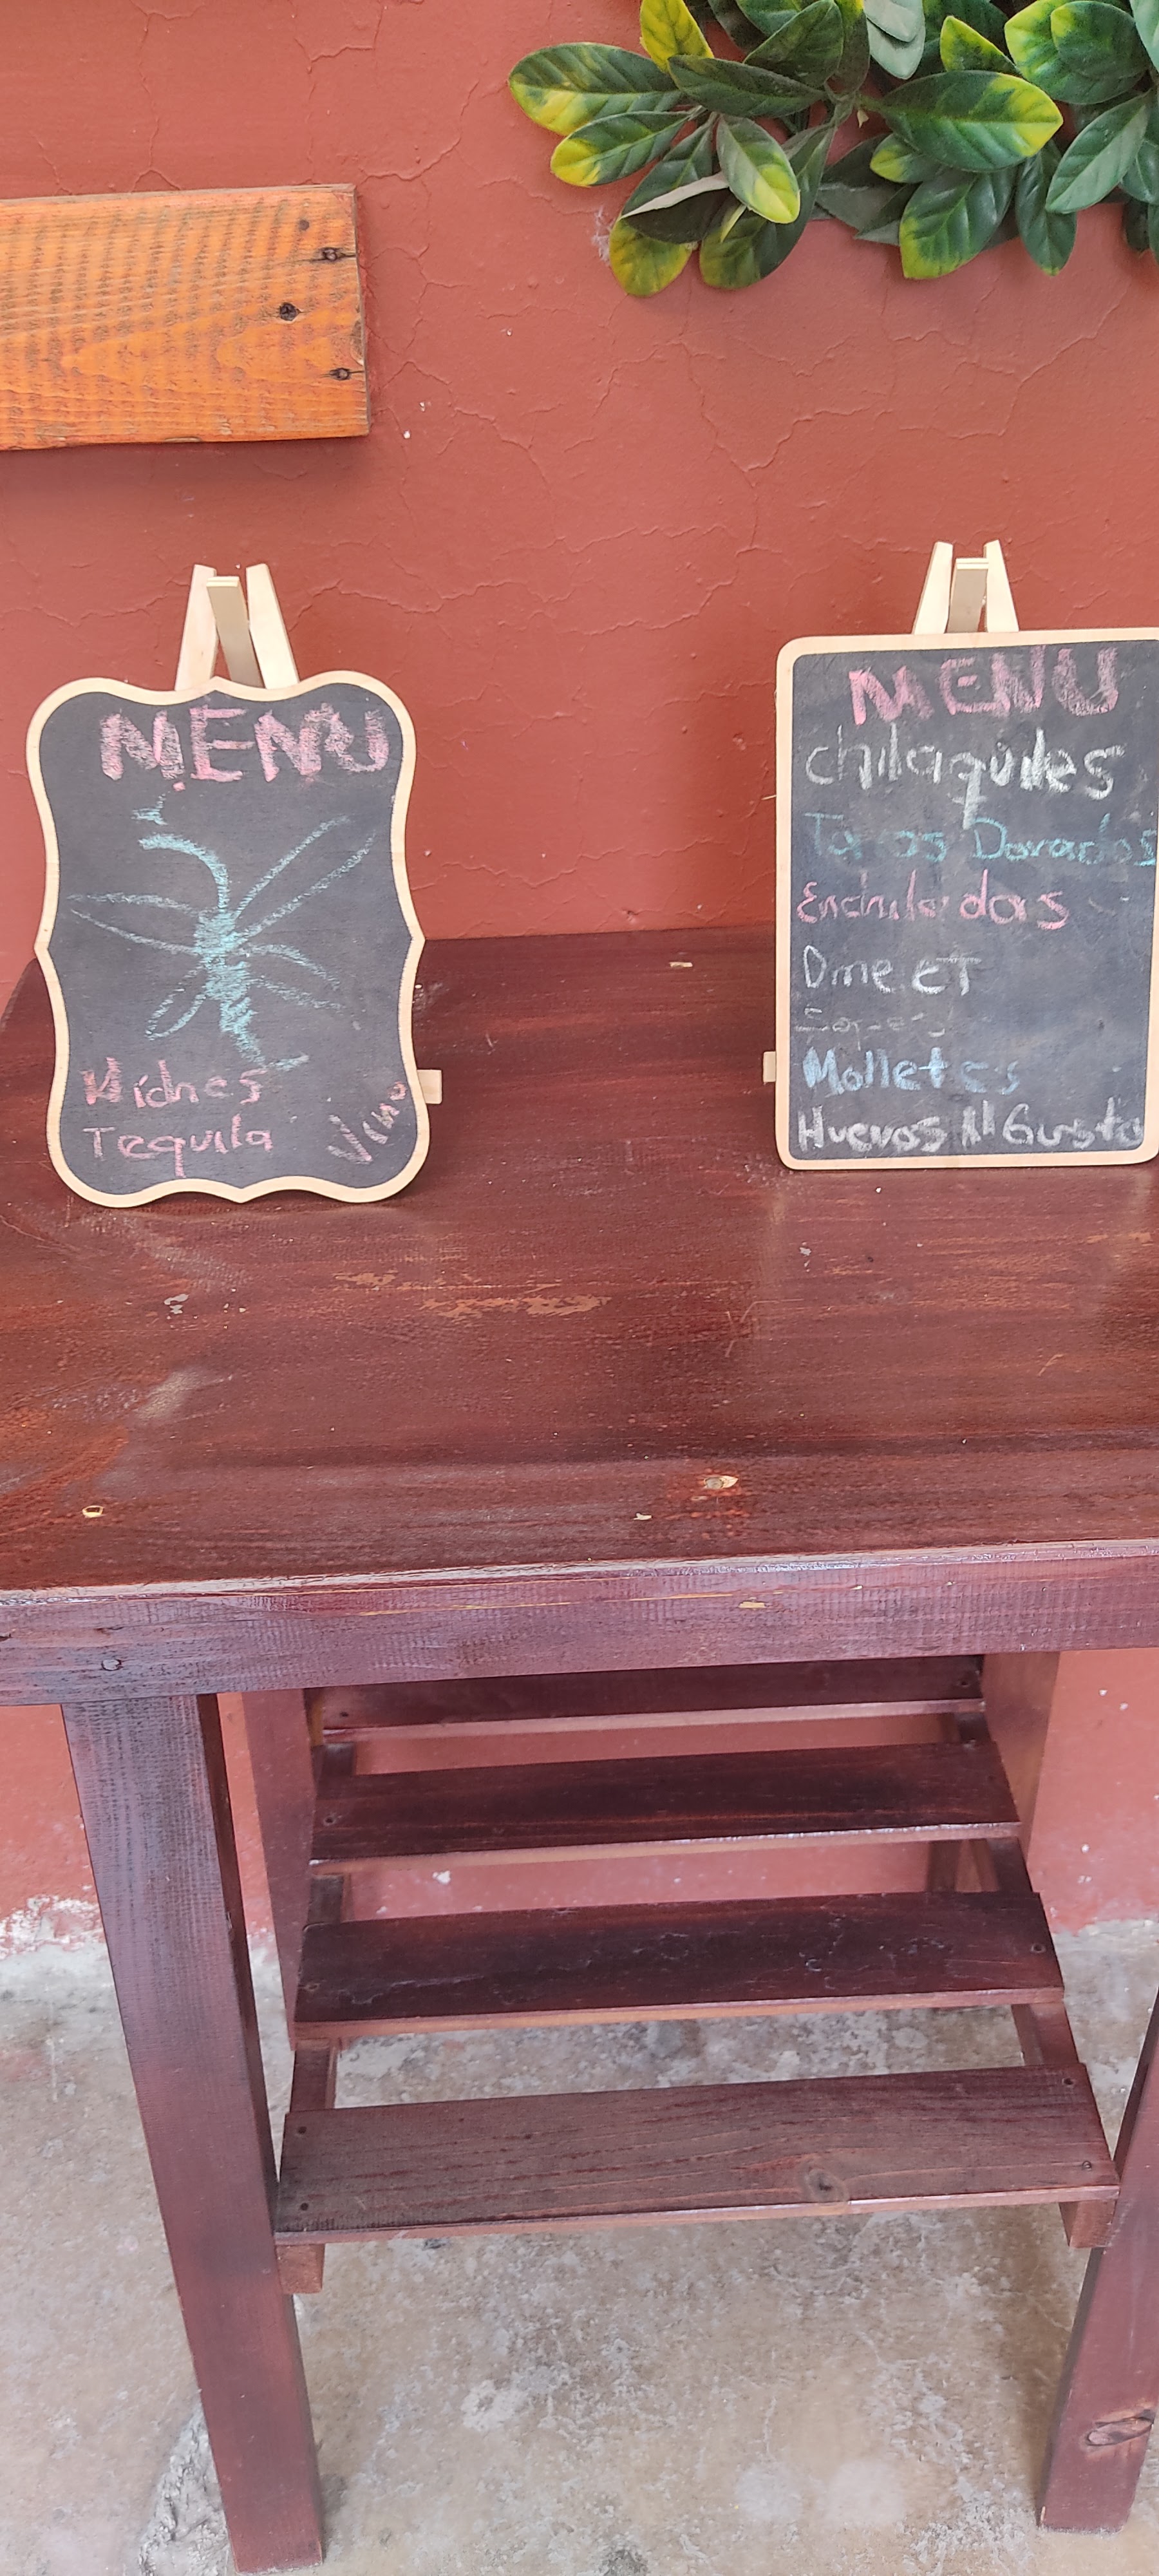 MENU
Kiches
Tequila
Vino
MENU
chilaquiles
Tacos Dorados
Enchiladas
Omelet
Molletes
Huevos Al Gusto